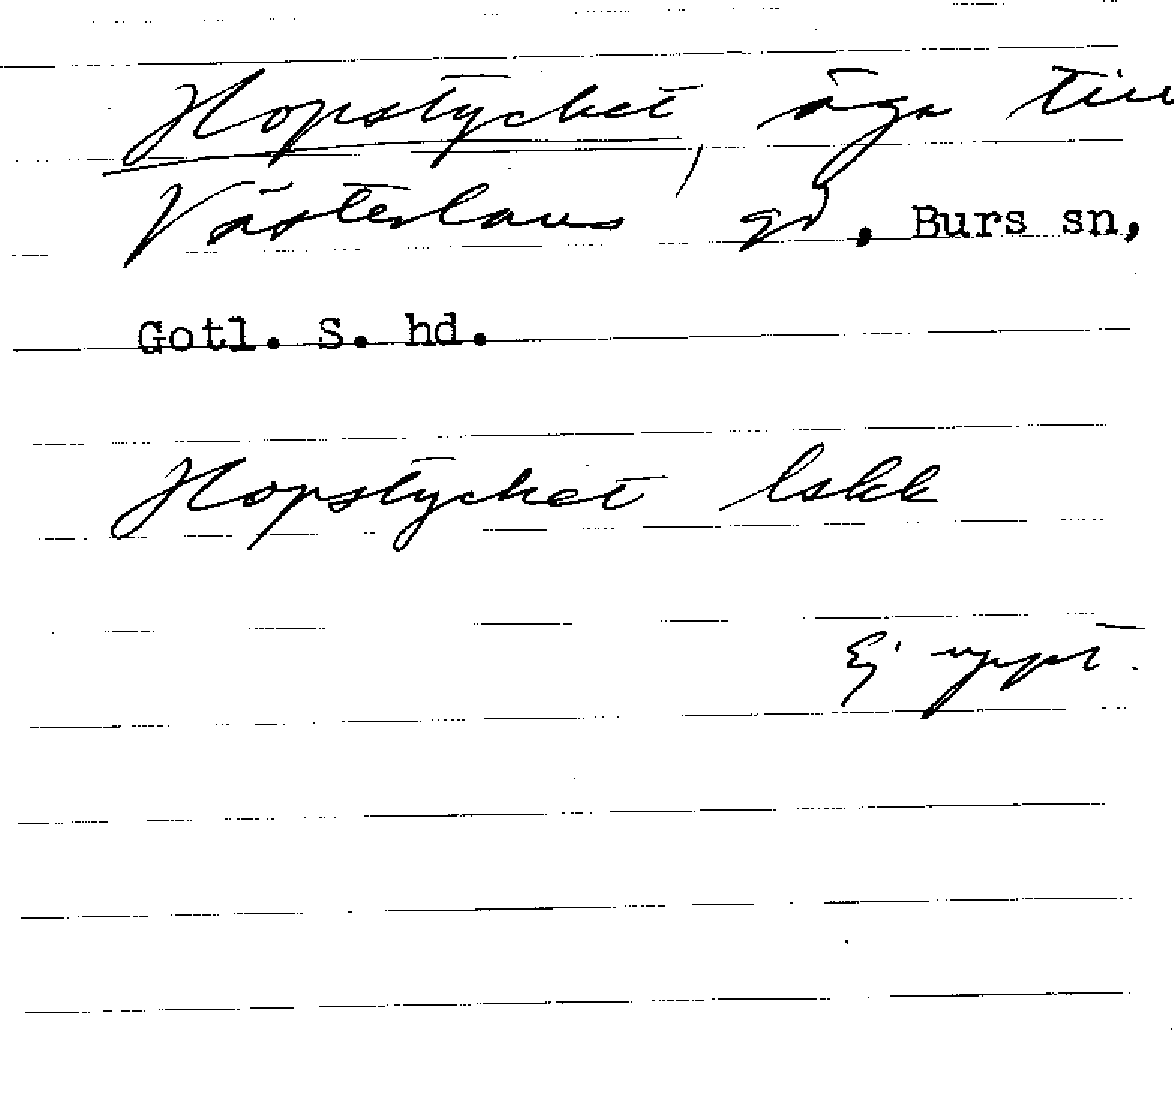 Hopstycket, äga till
Västerlaus gd, Burs sn,
Gotl. S. hd.
Hopstycket Lskk
Ej uppt.